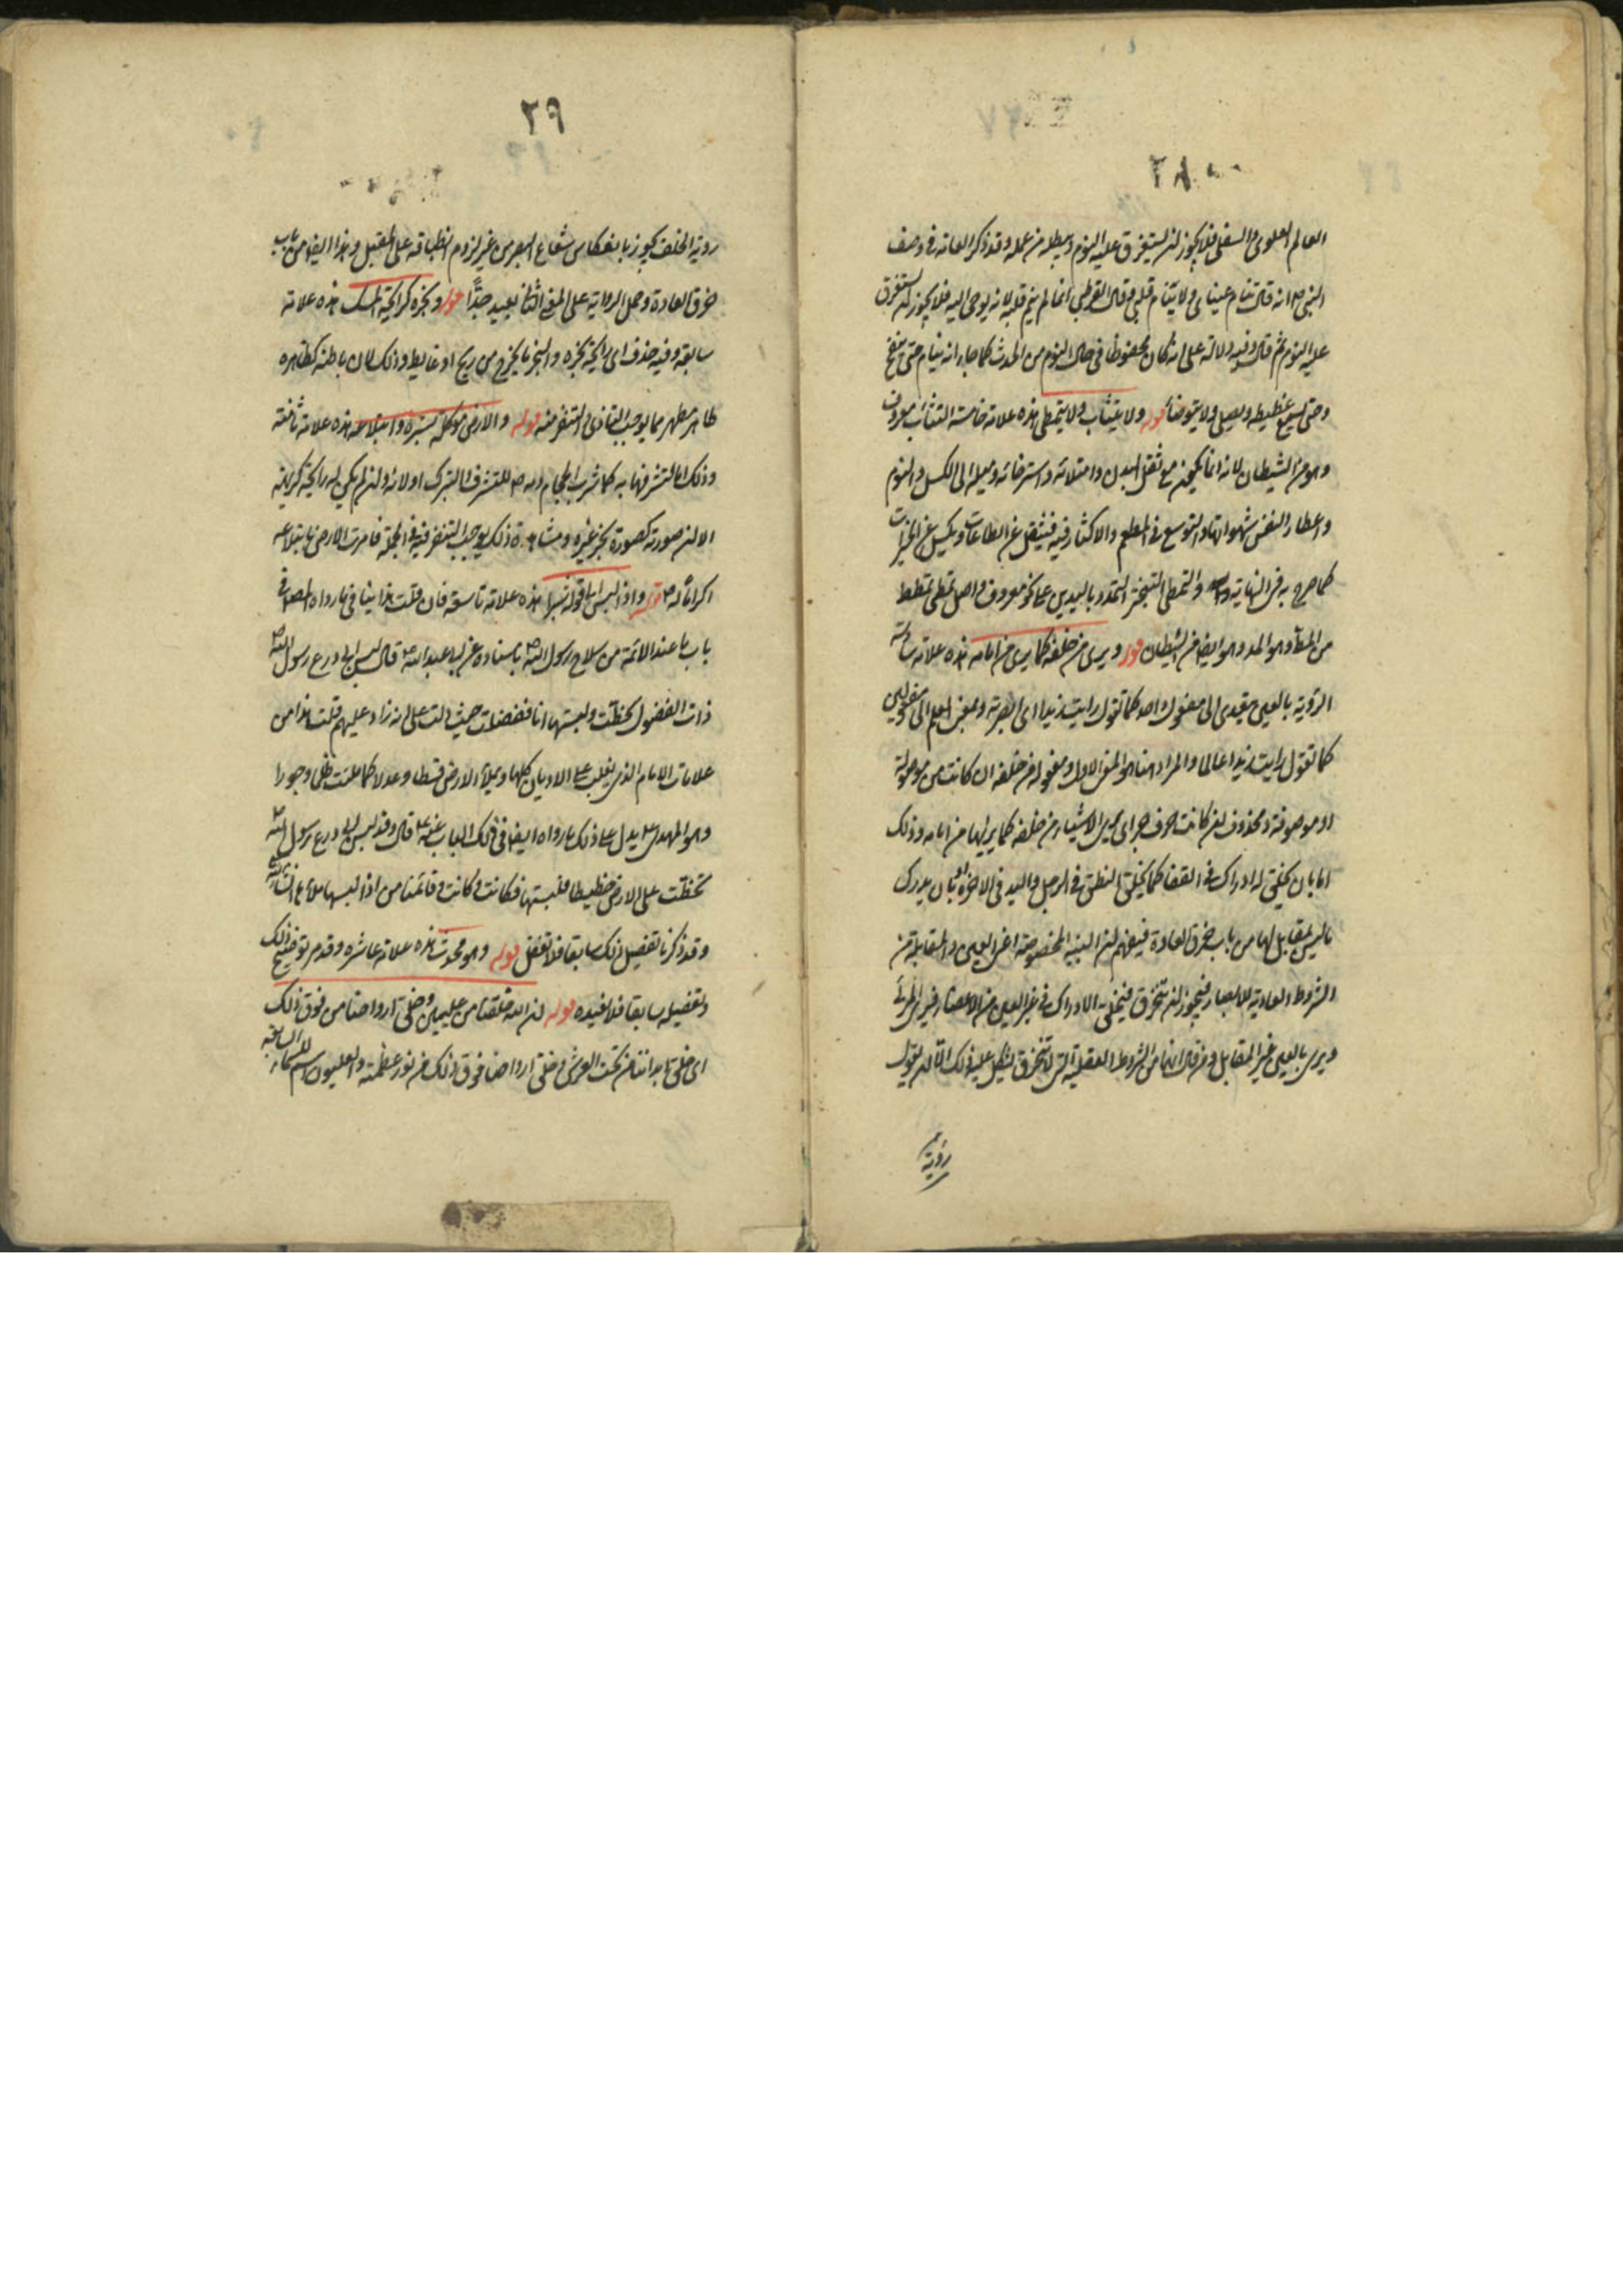 ٢٨
العالم العلوي والسفلي فلا يجوز لن يستغرق عليه النوم ويبطله من عمله وقد ذكر العامه في وصف
النبي ص انه قال تنام عيناي ولا ينام قلبي وقال القرطبي انما لم ينم قلبه لانه يوحى اليه فلا يجوز لن يستغرق
عليه النوم ثم قال وفيه دلالة على انه كان محفوظا في حال النوم من الحدث كما جاء انه ينام حتى ينفخ
وحتى يسمع غطيطه ويصلي ولا يتوضأ قوله ولا يتثاب ولا يتمطى هذه علامة خامسة التثائب معروف
وهو من الشيطان لانه انما يكون مع ثقل البدن وامتلائه واسترخائه وميله الى الكسل والنوم
واعطاء النفس شهواتها والتوسع في المطعم والاكثار فيه فيثقل عن الطاعات ويكسل عن الخيرات
كما صرح به في النهاية والتمطي التبختر التمدد باليدين على نحو معروف واصل تمطى تمطط
من المط وهو المد وهو ايضا من الشيطان قوله ويرى من خلفه كما يرى من امامه هذه علامة سادسة
الرؤية بالعين يتعدى الى مفعول واحد كما تقول رايت زيدا اي ابصرته وبمعنى العلم الى مفعولين
كما تقول رايت زيدا عالما والمراد هنا هو المعنى الاول ومفعوله من خلفه ان كانت من موصولة
او موصوفة ومحذوف لن كانت حرف جر اي يرى الاشياء من خلفه كما يراها من امامه وذلك
اما بان يخلق له ادراك في القفا كما يخلق النطق في الرجل واليد في الاخرة او بان يدرك
ما ليس بمقابل لها من باب خرق العادة فيفهم لن البنية المخصوصة اعني العين والمقابلة من
الشروط العادية للابصار فيجوز لن تنخرق فيخلق الادراك في غير العين من الاعضاء فيرى المرئي
ويرى بالعين غير المقابل ومن قال انها من الشروط العقلية التي لا تنخرق يشكل عليه ذلك الا لن يقول
رؤية
٢٩
رؤية الخلف يجوز بانعكاس شعاع البصر من غير لزوم انطباقه على المقابل وهذا ايضا من باب
خرق العادة وحمل الرواية على المعنى الثاني بعيد جدًّا قوله ونجوه كرائحة المسك هذه علامة
سابعة وفيه حذف اي رائحة نجوه والنجو ما يخرج من ريح او غايط وذلك لان باطنه كظاهره
طاهر مطهر مما يوجب التاذي والتنفر منه قوله والارض موكلة بستره وابتلاعه هذه علامة ثامنة
وذلك اما لتشرفها به كما شرب الحجام دمه ص للتشرف والتبرك اولانه ولن لم يكن له رائحة كريهة
الا لن صورته كصورة نجو غيره ومشاهدة ذلك يوجب التنفر فيه في الجملة فامرت الارض بابتلاعه
اكراما له ص قوله واذا لبس الى قوله شبرا هذه علامة تاسعة فان قلت هذا ينافي ما رواه المص في
باب ما عند الائمة من سلاح رسول الله ص باسناده عن ابي عبد الله ع قال لبس ابي درع رسول الله ص
ذات الفضول فخطّت ولبستها انا ففضلت حيث دلت على انه زاد عليهم قلت هذا من
علامات الامام الذي يغلب على الاديان كلها ويملأ الارض قسطا وعدلا كما ملئت ظلما وجورا
وهو المهدي ع يدل على ذلك ما رواه ايضا في ذلك الباب عنه ع قال وقد لبس ابي درع رسول الله ص
فخطّت على الارض خطيطا فلبستها فكانت وكانت وقائمنا من اذا لبسها ملأها انشاءالله
وقد ذكرنا تفصيل ذلك سابقا فلا تغفل قوله وهو محدث هذه علامة عاشرة وقد مر توضيح ذلك
وتفصيله سابقا فلا نعيده قوله لن الله خلقنا من عليين وخلق ارواحنا من فوق ذلك
اى خلق ابداننا من تحت العرش وخلق ارواحنا فوق ذلك من نور عظمته والعليون اسم للسماء السابعة